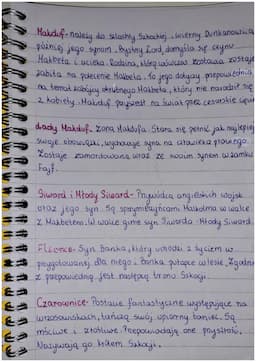 Makduf - należy do szlachty Szkockiej, wierny Dunkanowi, a
później jego synom. Bystry Lord, domyśla się czynu
Makbeta i ucieka. Rodzina, którą wówczas zostawia zostaje
zabita na polecenie Makbeta. To jego dotyczy przepowiednia
na temat zabójcy okrutnego Makbeta, który nie narodził się
z kobiety. Makduf przyszedł na świat przez cesarskie cięcie
Lady Makduf - Żona Makdufa. Stara się pełnić jak najlepiej
swoje obowiązki, wychowuje syna na człowieka prawego.
Zostaje zamordowana wraz ze swoim synem w zamku
Fajf.
Siward i Młody Siward - Przywódca angielskich wojsk
oraz jego syn. Są sprzymierzeńcami Malkolma w walce
z Makbetem. W walce ginie syn Siwarda - Młody Siward.
Fleance - Syn Banka, który uchodzi z życiem w
przygotowanej dla niego i Banka pułapce w lesie. Zgodnie
z przepowiednią, jest następcą tronu Szkocji.
Czarownice - Postacie fantastyczne występujące na
wrzosowiskach, tańczą swój upiorny taniec. Są
mściwe i złośliwe. Przepowiadają one przyszłość.
Nazywają go królem Szkocji.